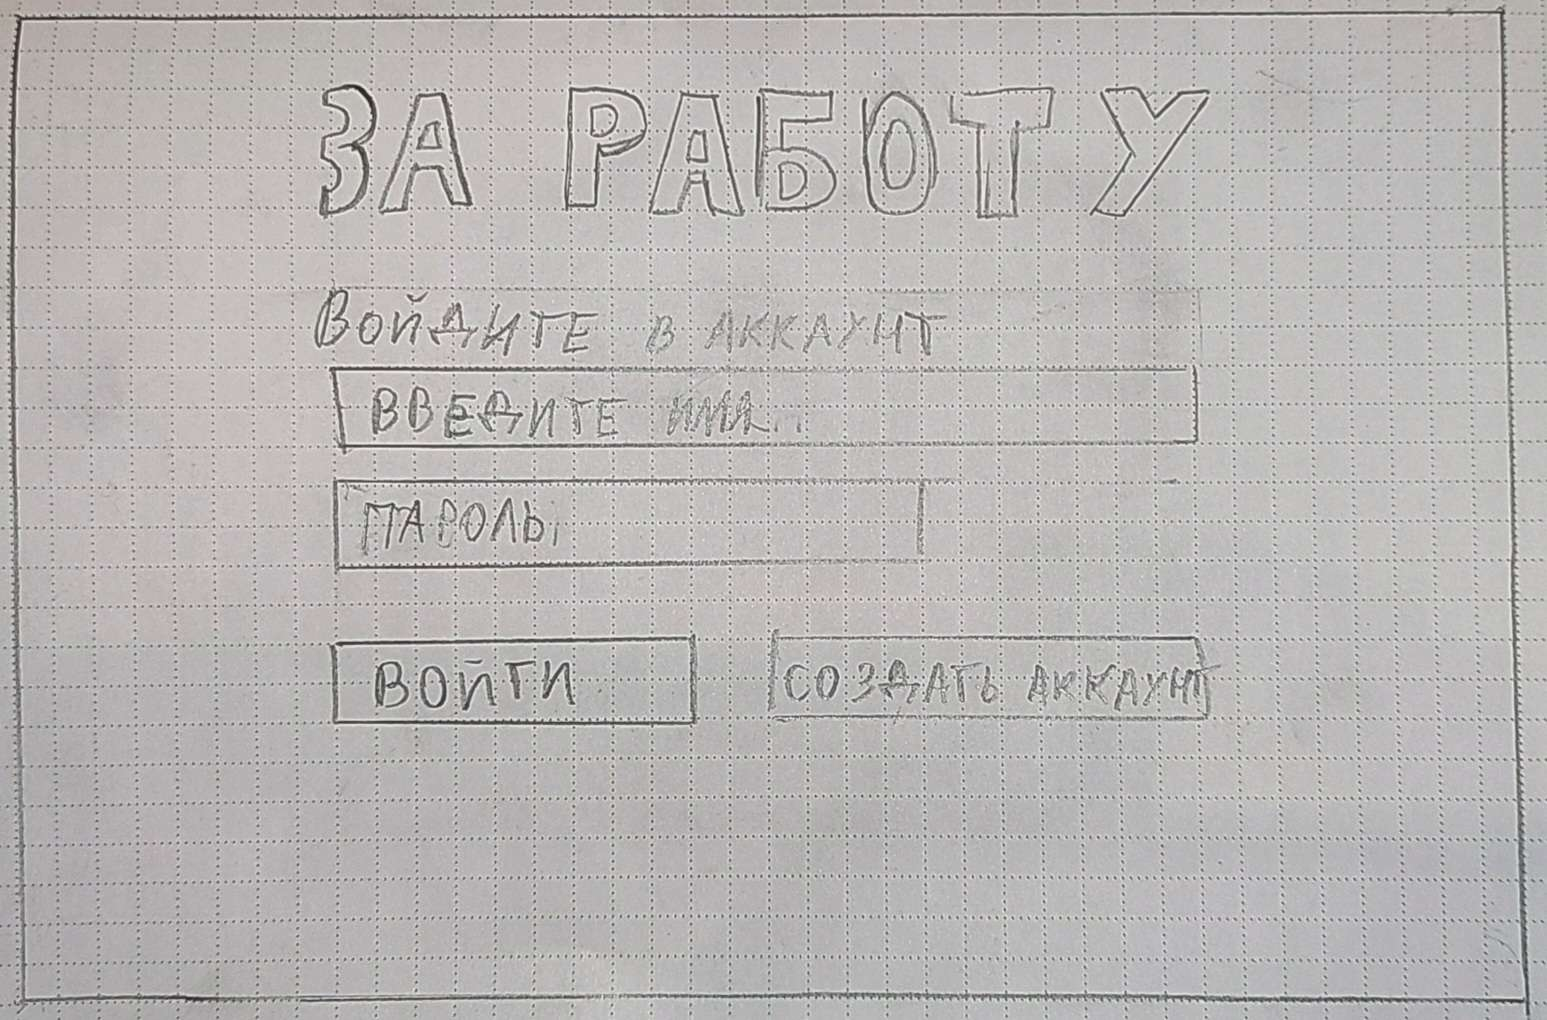 ЗА РАБОТУ
Войдите в аккаунт
ВВЕДИТЕ ИМЯ...
ПАРОЛЬ
ВОЙТИ
СОЗДАТЬ АККАУНТ